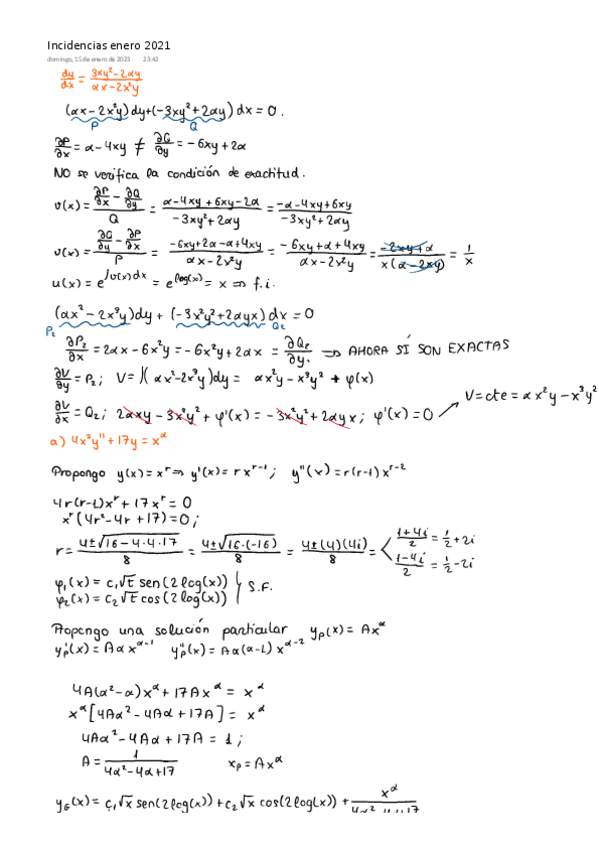 Incidencias enero 2021
domingo, 15 de enero de 2023 23:42
dy/dx = (3xy²-2αy)/(αx-2x²y)
(αx-2x²y)dy+(-3xy²+2αy)dx=0.
P Q
∂P/∂x = α-4xy ≠ ∂Q/∂y = -6xy+2α
NO se verifica la condición de exactitud.
υ(x) = (∂P/∂x - ∂Q/∂y)/Q = (α-4xy+6xy-2α)/(-3xy²+2αy) = (-α-4xy+6xy)/(-3xy²+2αy)
υ(x) = (∂Q/∂y - ∂P/∂x)/P = (-6xy+2α-α+4xy)/(αx-2x²y) = (-6xy+α+4xy)/(αx-2x²y) = (-2xy+α)/(x(α-2xy)) = 1/x
u(x) = e^∫υ(x)dx = e^log(x) = x ⇒ f.i.
(αx²-2x³y)dy + (-3x²y²+2αyx)dx = 0
P₂ Q₂
∂P₂/∂x = 2αx-6x²y = -6x²y+2αx = ∂Q₂/∂y. ⇒ AHORA SÍ SON EXACTAS
∂V/∂y = P₂; V=∫(αx²-2x³y)dy = αx²y-x³y² + φ(x)
∂V/∂x = Q₂; 2αxy-3x²y²+φ'(x) = -3x²y²+2αyx; φ'(x)=0 → V=cte=αx²y-x³y²
a) 4x²y''+17y=x^α
Propongo y(x)=x^r ⇒ y'(x)=rx^(r-1); y''(x)=r(r-1)x^(r-2)
4r(r-1)x^r+17x^r=0
x^r(4r²-4r+17)=0;
r = (4±√(16-4·4·17))/8 = (4±√(16·(-16)))/8 = (4±(4)(4i))/8 = < (1+4i)/2 = 1/2+2i
(1-4i)/2 = 1/2-2i
φ₁(x) = c₁√t sen(2log(x))
φ₂(x) = c₂√t cos(2log(x)) } S.F.
Propongo una solución particular y_p(x)=Ax^α
y'_p(x)=Aαx^(α-1) y''_p(x)=Aα(α-1)x^(α-2)
4A(α²-α)x^α+17Ax^α = x^α
x^α[4Aα²-4Aα+17A] = x^α
4Aα²-4Aα+17A = 1;
A = 1/(4α²-4α+17) x_p=Ax^α
y_G(x) = c₁√x sen(2log(x))+c₂√x cos(2log(x))+ x^α